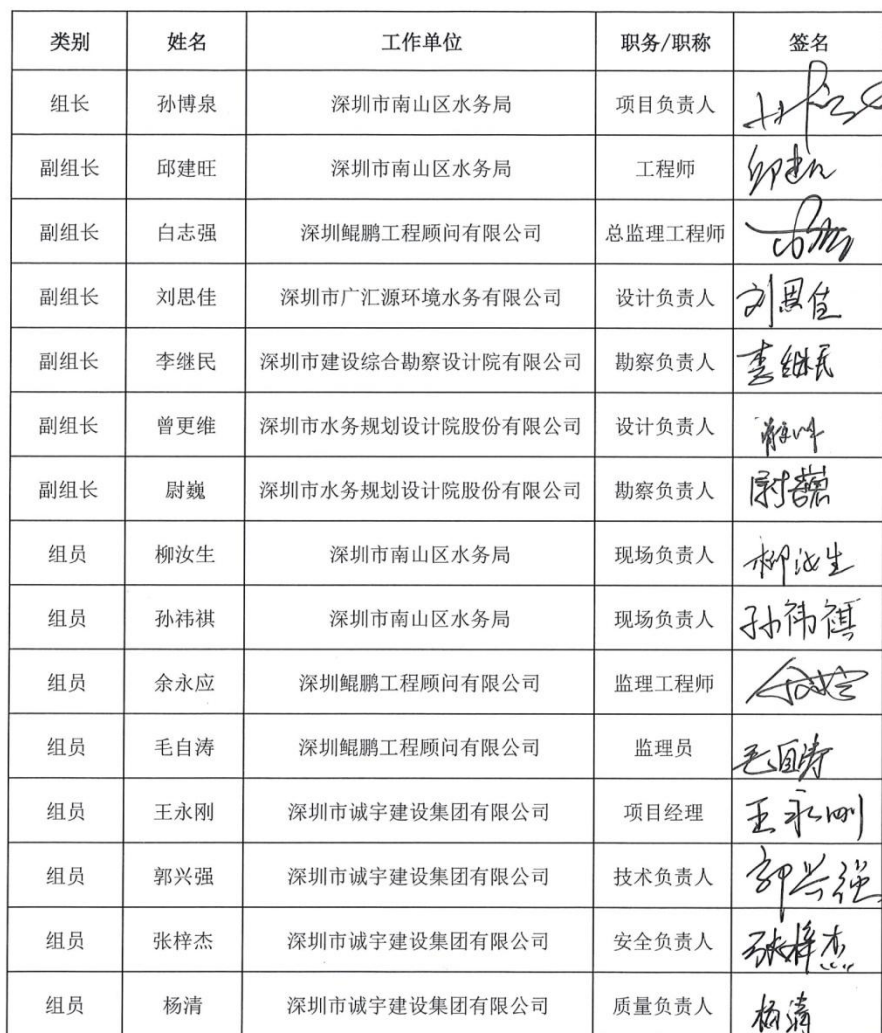 类别 姓名 工作单位 职务/职称 签名
组长 孙博泉 深圳市南山区水务局 项目负责人
副组长 邱建旺 深圳市南山区水务局 工程师 邱建旺
副组长 白志强 深圳鲲鹏工程顾问有限公司 总监理工程师
副组长 刘思佳 深圳市广汇源环境水务有限公司 设计负责人 刘思佳
副组长 李继民 深圳市建设综合勘察设计院有限公司 勘察负责人 李继民
副组长 曾更维 深圳市水务规划设计院股份有限公司 设计负责人
副组长 尉巍 深圳市水务规划设计院股份有限公司 勘察负责人 尉巍
组员 柳汝生 深圳市南山区水务局 现场负责人 柳汝生
组员 孙祎祺 深圳市南山区水务局 现场负责人 孙祎祺
组员 余永应 深圳鲲鹏工程顾问有限公司 监理工程师
组员 毛自涛 深圳鲲鹏工程顾问有限公司 监理员 毛自涛
组员 王永刚 深圳市诚宇建设集团有限公司 项目经理 王永刚
组员 郭兴强 深圳市诚宇建设集团有限公司 技术负责人 郭兴强
组员 张梓杰 深圳市诚宇建设集团有限公司 安全负责人 张梓杰
组员 杨清 深圳市诚宇建设集团有限公司 质量负责人 杨清